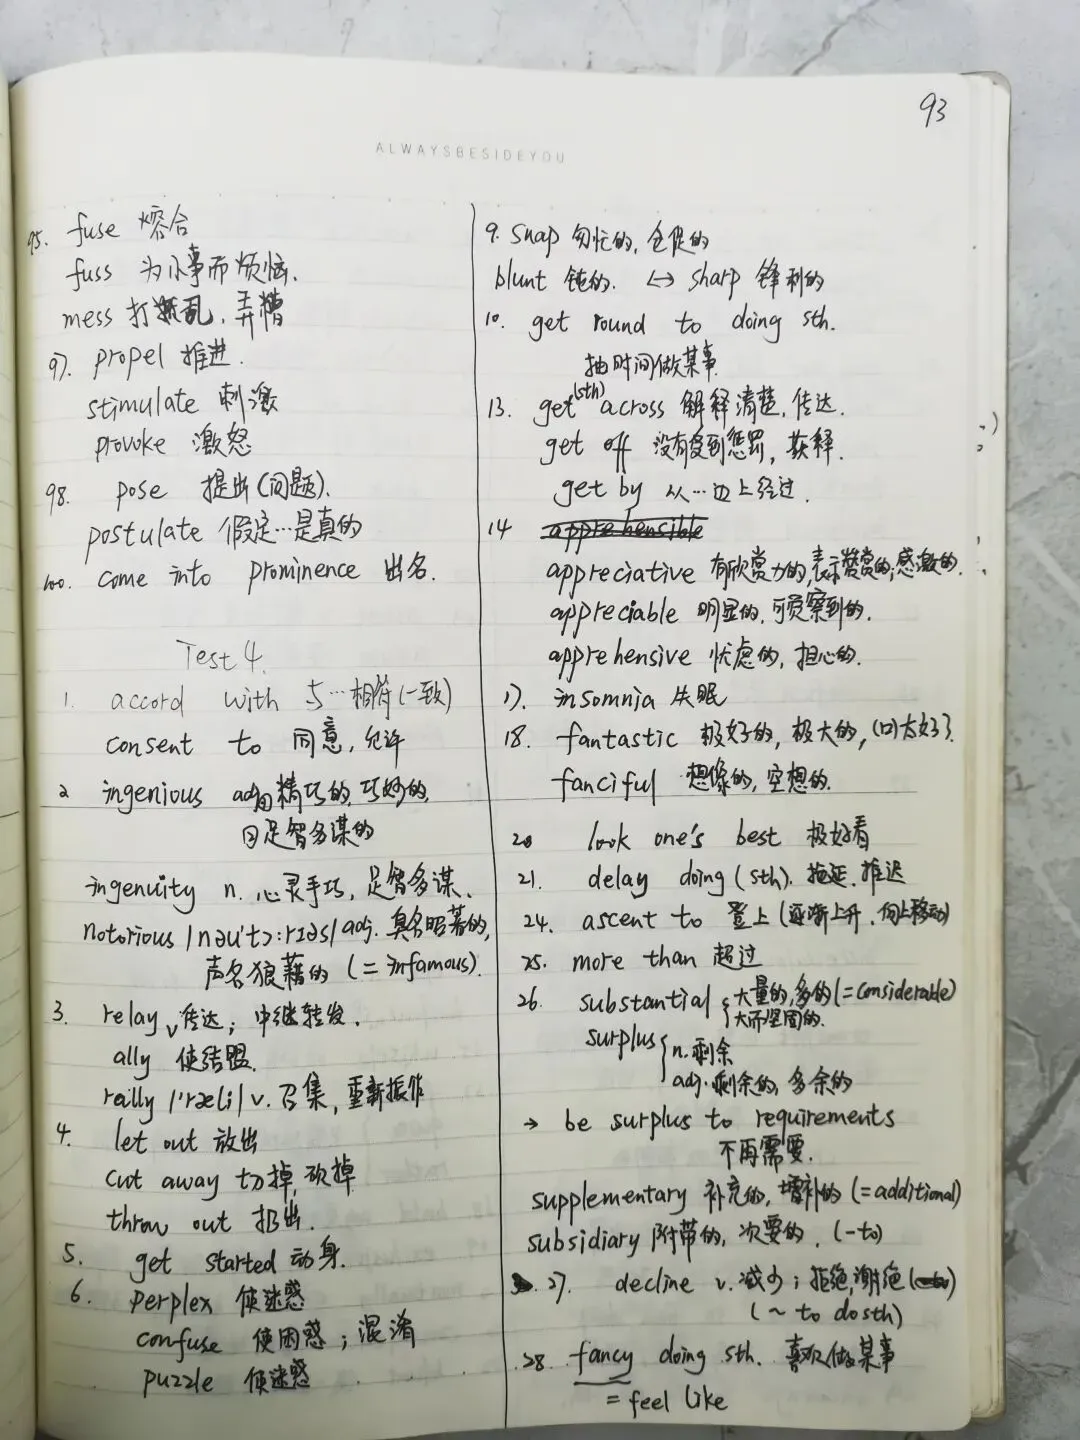 93
ALWAYSBESIDEYOU
95. fuse 熔合
fuss 为小事而烦恼.
mess 打乱, 弄糟
97. propel 推进.
stimulate 刺激
provoke 激怒
98. pose 提出(问题).
postulate 假定…是真的
100. come into prominence 出名.
Test 4.
1. accord with 与…相符(一致)
consent to 同意, 允许
2 ingenious adj 精巧的, 巧妙的,
足智多谋的
ingenuity n. 心灵手巧, 足智多谋.
notorious /nəu'tɔ:rɪəs/ adj. 臭名昭著的,
声名狼藉的 (= infamous).
3. relay v 传达; 中继转发.
ally 使结盟.
rally /'ræli/ v. 召集, 重新振作
4. let out 放出
cut away 切掉, 砍掉
throw out 扔出.
5. get started 动身.
6. perplex 使迷惑
confuse 使困惑; 混淆
puzzle 使迷惑
9. snap 匆忙的, 仓促的
blunt 钝的. ↔ sharp 锋利的
10. get round to doing sth.
抽时间做某事.
13. get (sth) across 解释清楚, 传达.
get off 没有受到惩罚, 获释.
get by 从…边上经过.
14 apprehensible
appreciative 有欣赏力的, 表示赞赏的; 感激的.
appreciable 明显的, 可觉察到的.
apprehensive 忧虑的, 担心的.
17. insomnia 失眠
18. fantastic 极好的, 极大的, (口)太好了.
fanciful 想像的, 空想的.
20 look one's best 极好看
21. delay doing (sth). 拖延, 推迟
24. ascent to 登上 (逐渐上升, 向上移动)
25. more than 超过
26. substantial { 大量的, 多的 (= considerable)
大而坚固的.
surplus { n. 剩余
adj. 剩余的, 多余的
→ be surplus to requirements
不再需要.
supplementary 补充的, 增补的 (= additional)
subsidiary 附带的, 次要的. (-to)
27. decline v. 减少; 拒绝, 谢绝
(~ to do sth)
28 fancy doing sth. 喜欢做某事
= feel like